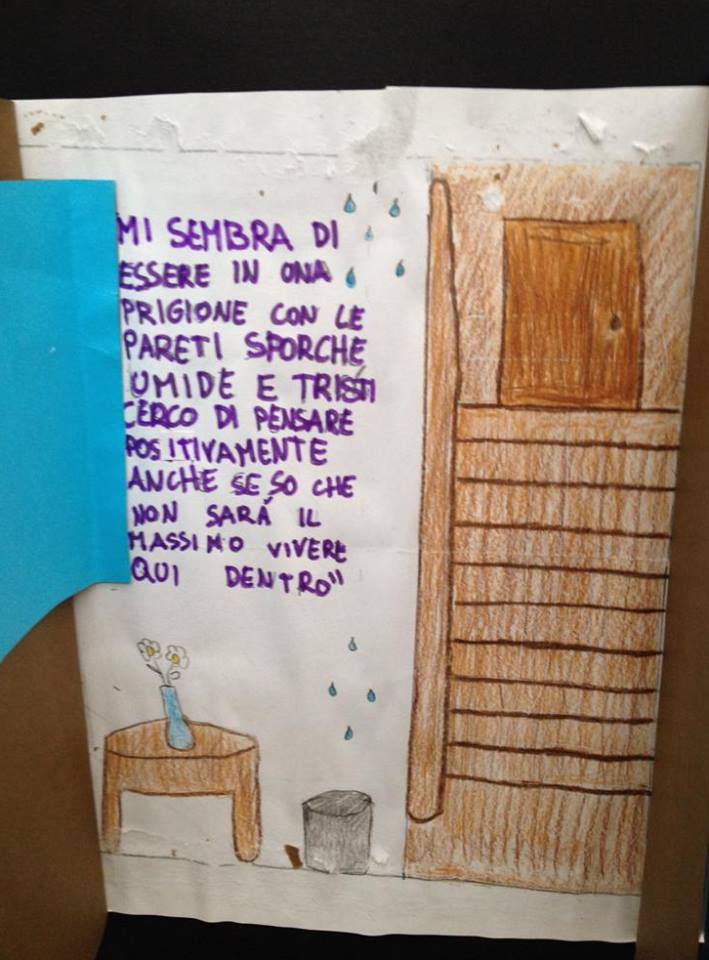 MI SEMBRA DI
ESSERE IN ONA
PRIGIONE CON LE
PARETI SPORCHE
UMIDE E TRISTI
CERCO DI PENSARE
POSITIVAMENTE
ANCHE SE SO CHE
NON SARÁ IL
MASSIMO VIVERE
QUI DENTRO"